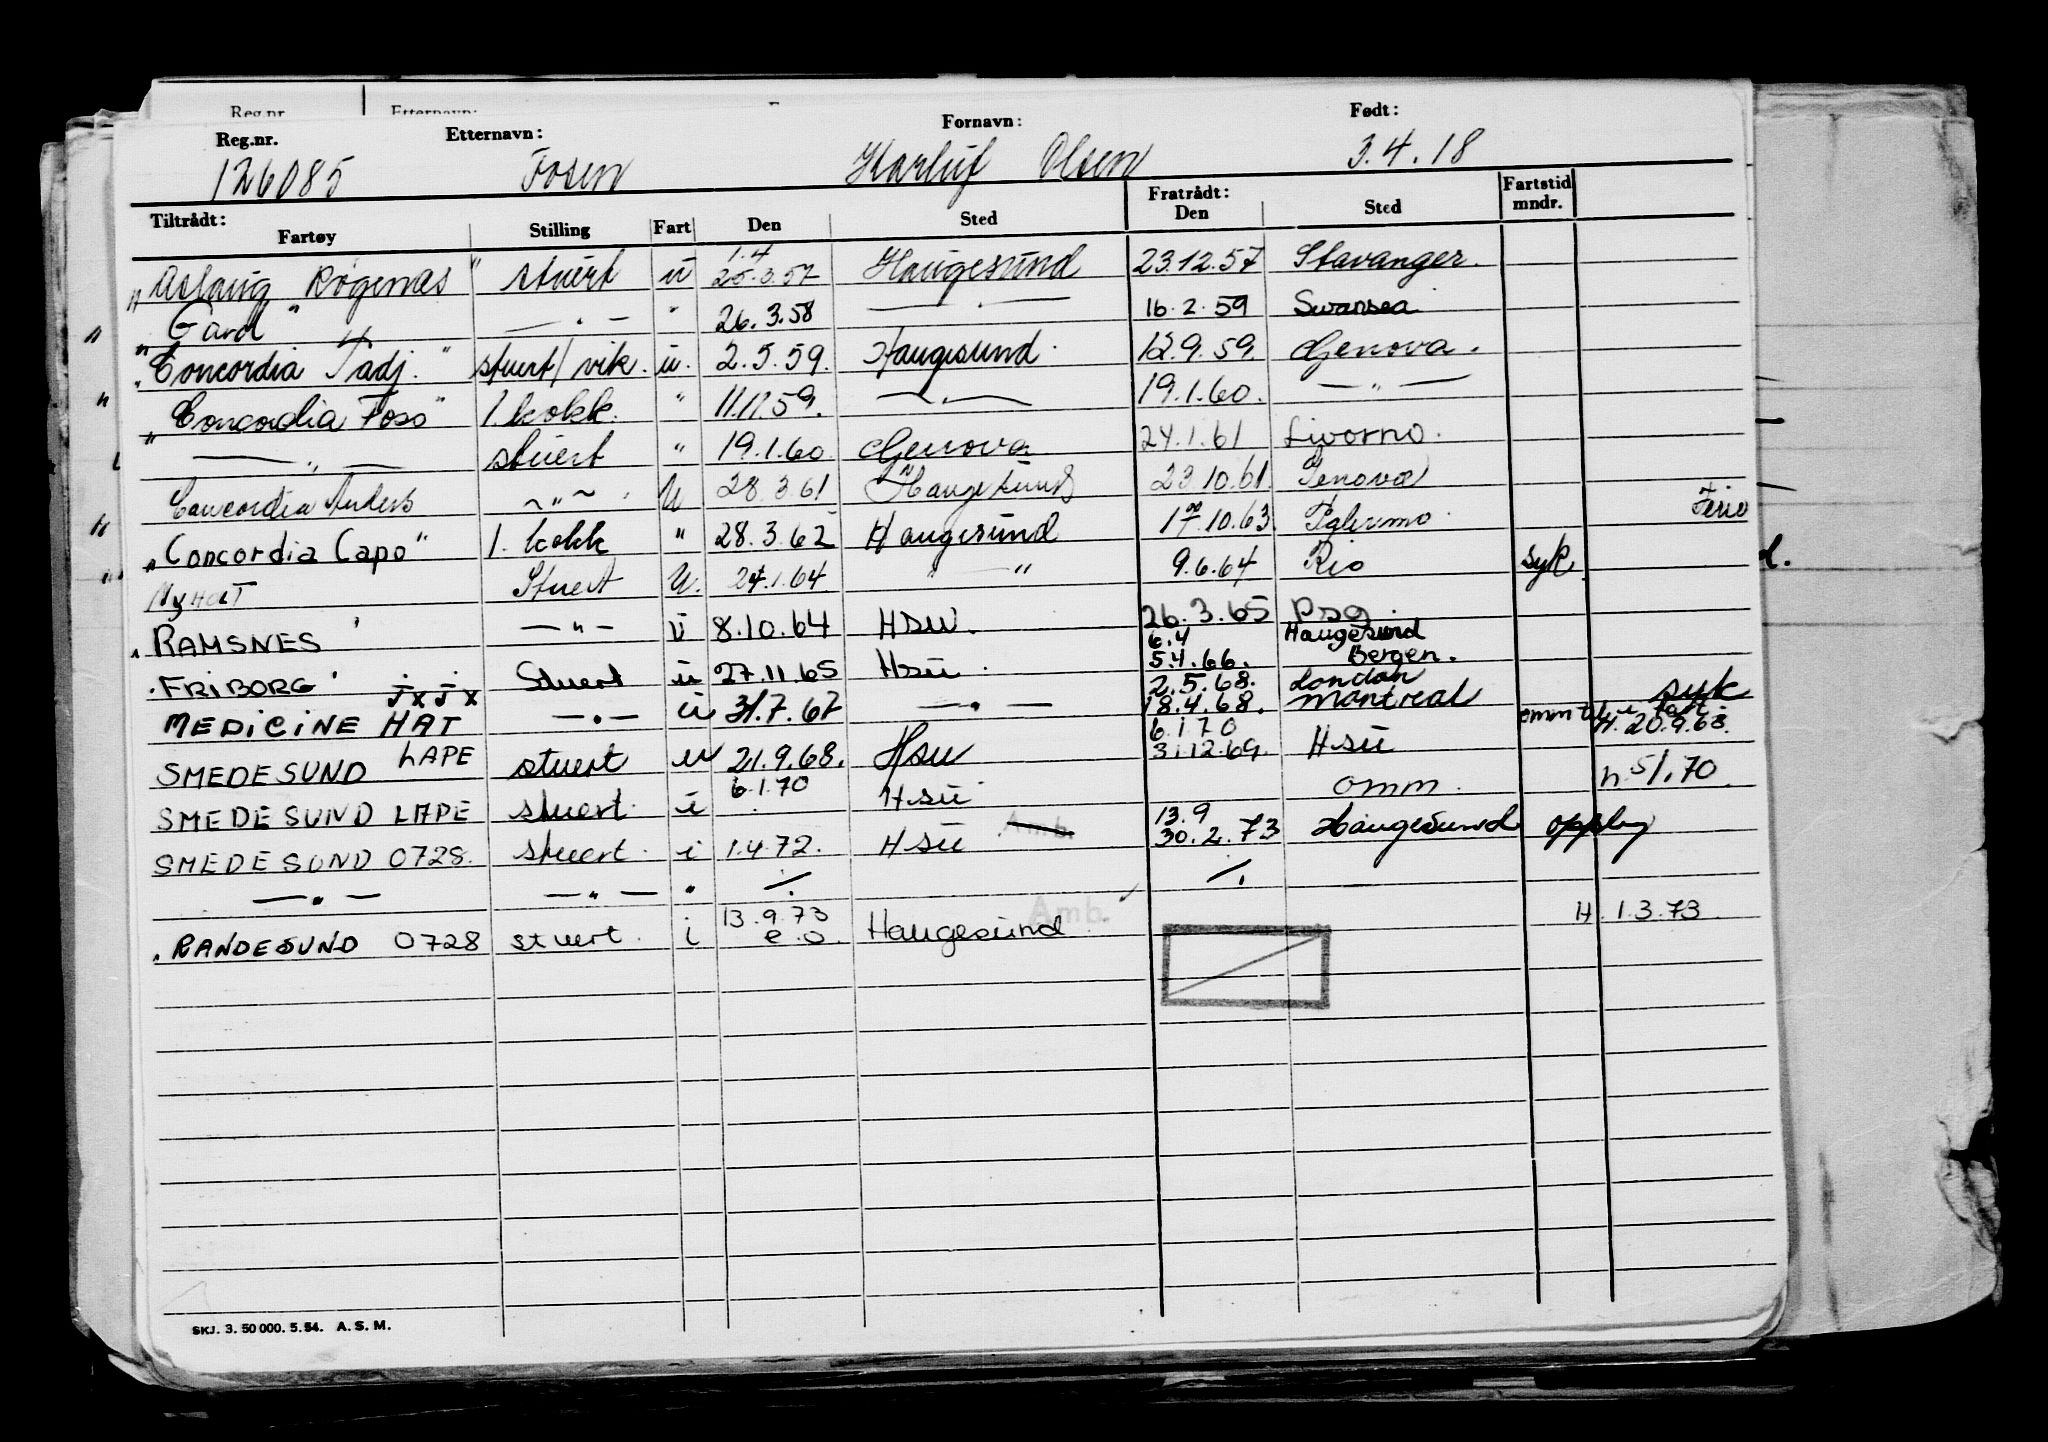 Reg.nr. Etternavn:
Reg.nr. Etternavn: Fornavn: Født:
126085 Fosen Harluf Olsen 3.4.18
Tiltrådt: Fratrådt: Fartstid
Fartøy Stilling Fart Den Sted Den Sted mndr.
1.4
"Aslaug Røgenæs" stuert u 25.3.57 Haugesund 23.12.57 Stavanger.
"Gard" — " — " 26.3.58 — " — 16.2.59 Swansea
"Concordia Tadj." stuert/vik. u. 2.5.59. Haugesund. 12.9.59. Genova.
"Concordia Foss" 1. kokk. " 11.11.59. — " — 19.1.60. — " —
— " — stuert " 19.1.60. Genova. 24.1.61 Livorno.
Concordia Anders — " — U 28.3.61 Haugesund 23.10.61. Genova
"Concordia Capo" 1. kokk " 28.3.62 Haugesund 17.10.63. Palermo. Ferie
Stuert U. 24.1.64 — " 9.6.64 Rio syk.
"RAMSNES" — " — U 8.10.64 HSU. 26.3.65 Psg.
6.4 Haugesund
"FRIBORG" Stuert u 27.11.65 Hsu. 5.4.66. Bergen.
JXJX 2.5.68. London syk
MEDICINE HAT — " — u 31.7.67 — " — 18.4.68. Montreal
6.1.70 H. 20.9.68.
SMEDESUND LAPE stuert u 21.9.68. Hsu 31.12.69. Hsu
SMEDESUND LAPE stuert. u 6.1.70 Hsu omm. h. 5/1.70.
13.9
SMEDESUND 0728. stuert. i 1.4.72. Hsu Amb. 30.2.73 Haugesund opplag
— " — — " — " ./. ./.
13.9.73 Amb. H. 1.3.73.
RANDESUND 0728 stuert. i e.o. Haugesund
SKJ. 3. 50 000. 5. 54. A. S. M.